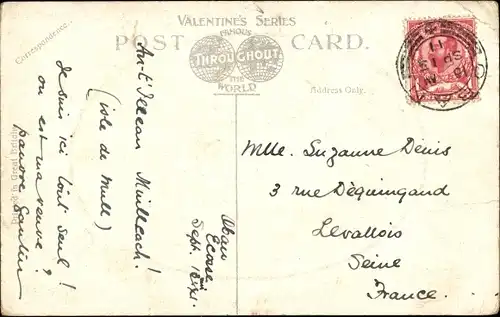 VALENTINE'S SERIES
FAMOUS
POST CARD.
THROUGHOUT
THE
WORLD
Correspondence.
Address Only.
An t' Illean Muilleach!
(isle de Mull)
Je suis ici tout seul!
où est ma veuve?
pauvre
Oban
Ecosse
Sept.
Mlle. Suzanne Denis
3 rue Déquingand
Levallois
Seine
France.
Printed in Great Britain
OBAN
SP 13
11